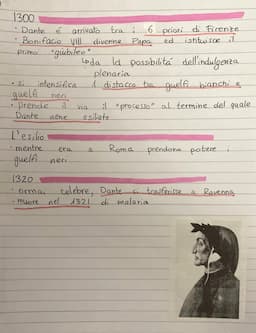 1300
· Dante è arrivato tra i 6 priori di Firenze
· Bonifacio VIII divenne Papa, ed istituisce il
primo "giubileo"
↳ dà la possibilità dell'indulgenza
plenaria
· si intensifica il distacco tra guelfi bianchi e
guelfi neri
· Prende il via il "processo" al termine del quale
Dante viene esiliato
L'esilio
· mentre era a Roma prendono potere i
guelfi neri
1320
· ormai celebre, Dante si trasferisce a Ravenna
· muore nel 1321 di malaria